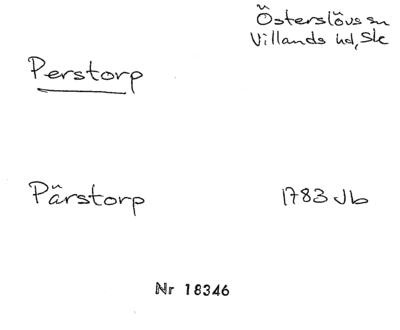 Österslövs sn
Villands hd, Sk
Perstorp
Pärstorp 1783 Jb
Nr 18346